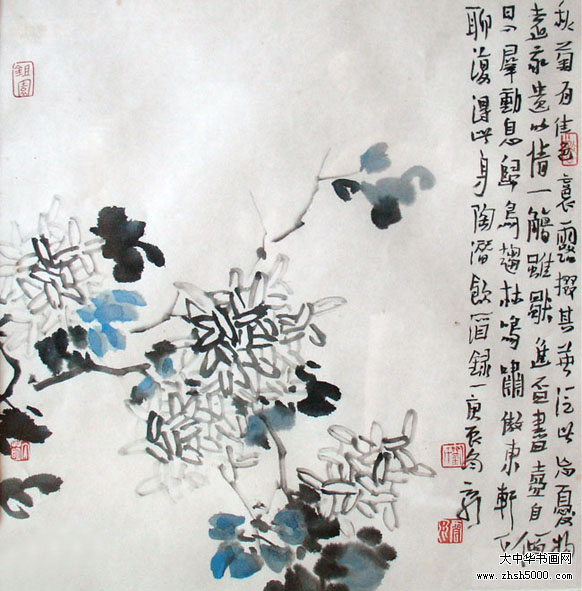 秋菊有佳色裛露掇其英泛此忘憂物
遠我遺世情一觴雖獨進盃盡壺自傾
日入羣動息歸鳥趨林鳴嘯傲東軒下
聊復得此生陶潛飲酒錄一庚辰冬
大中华书画网
www.zhsh5000.com